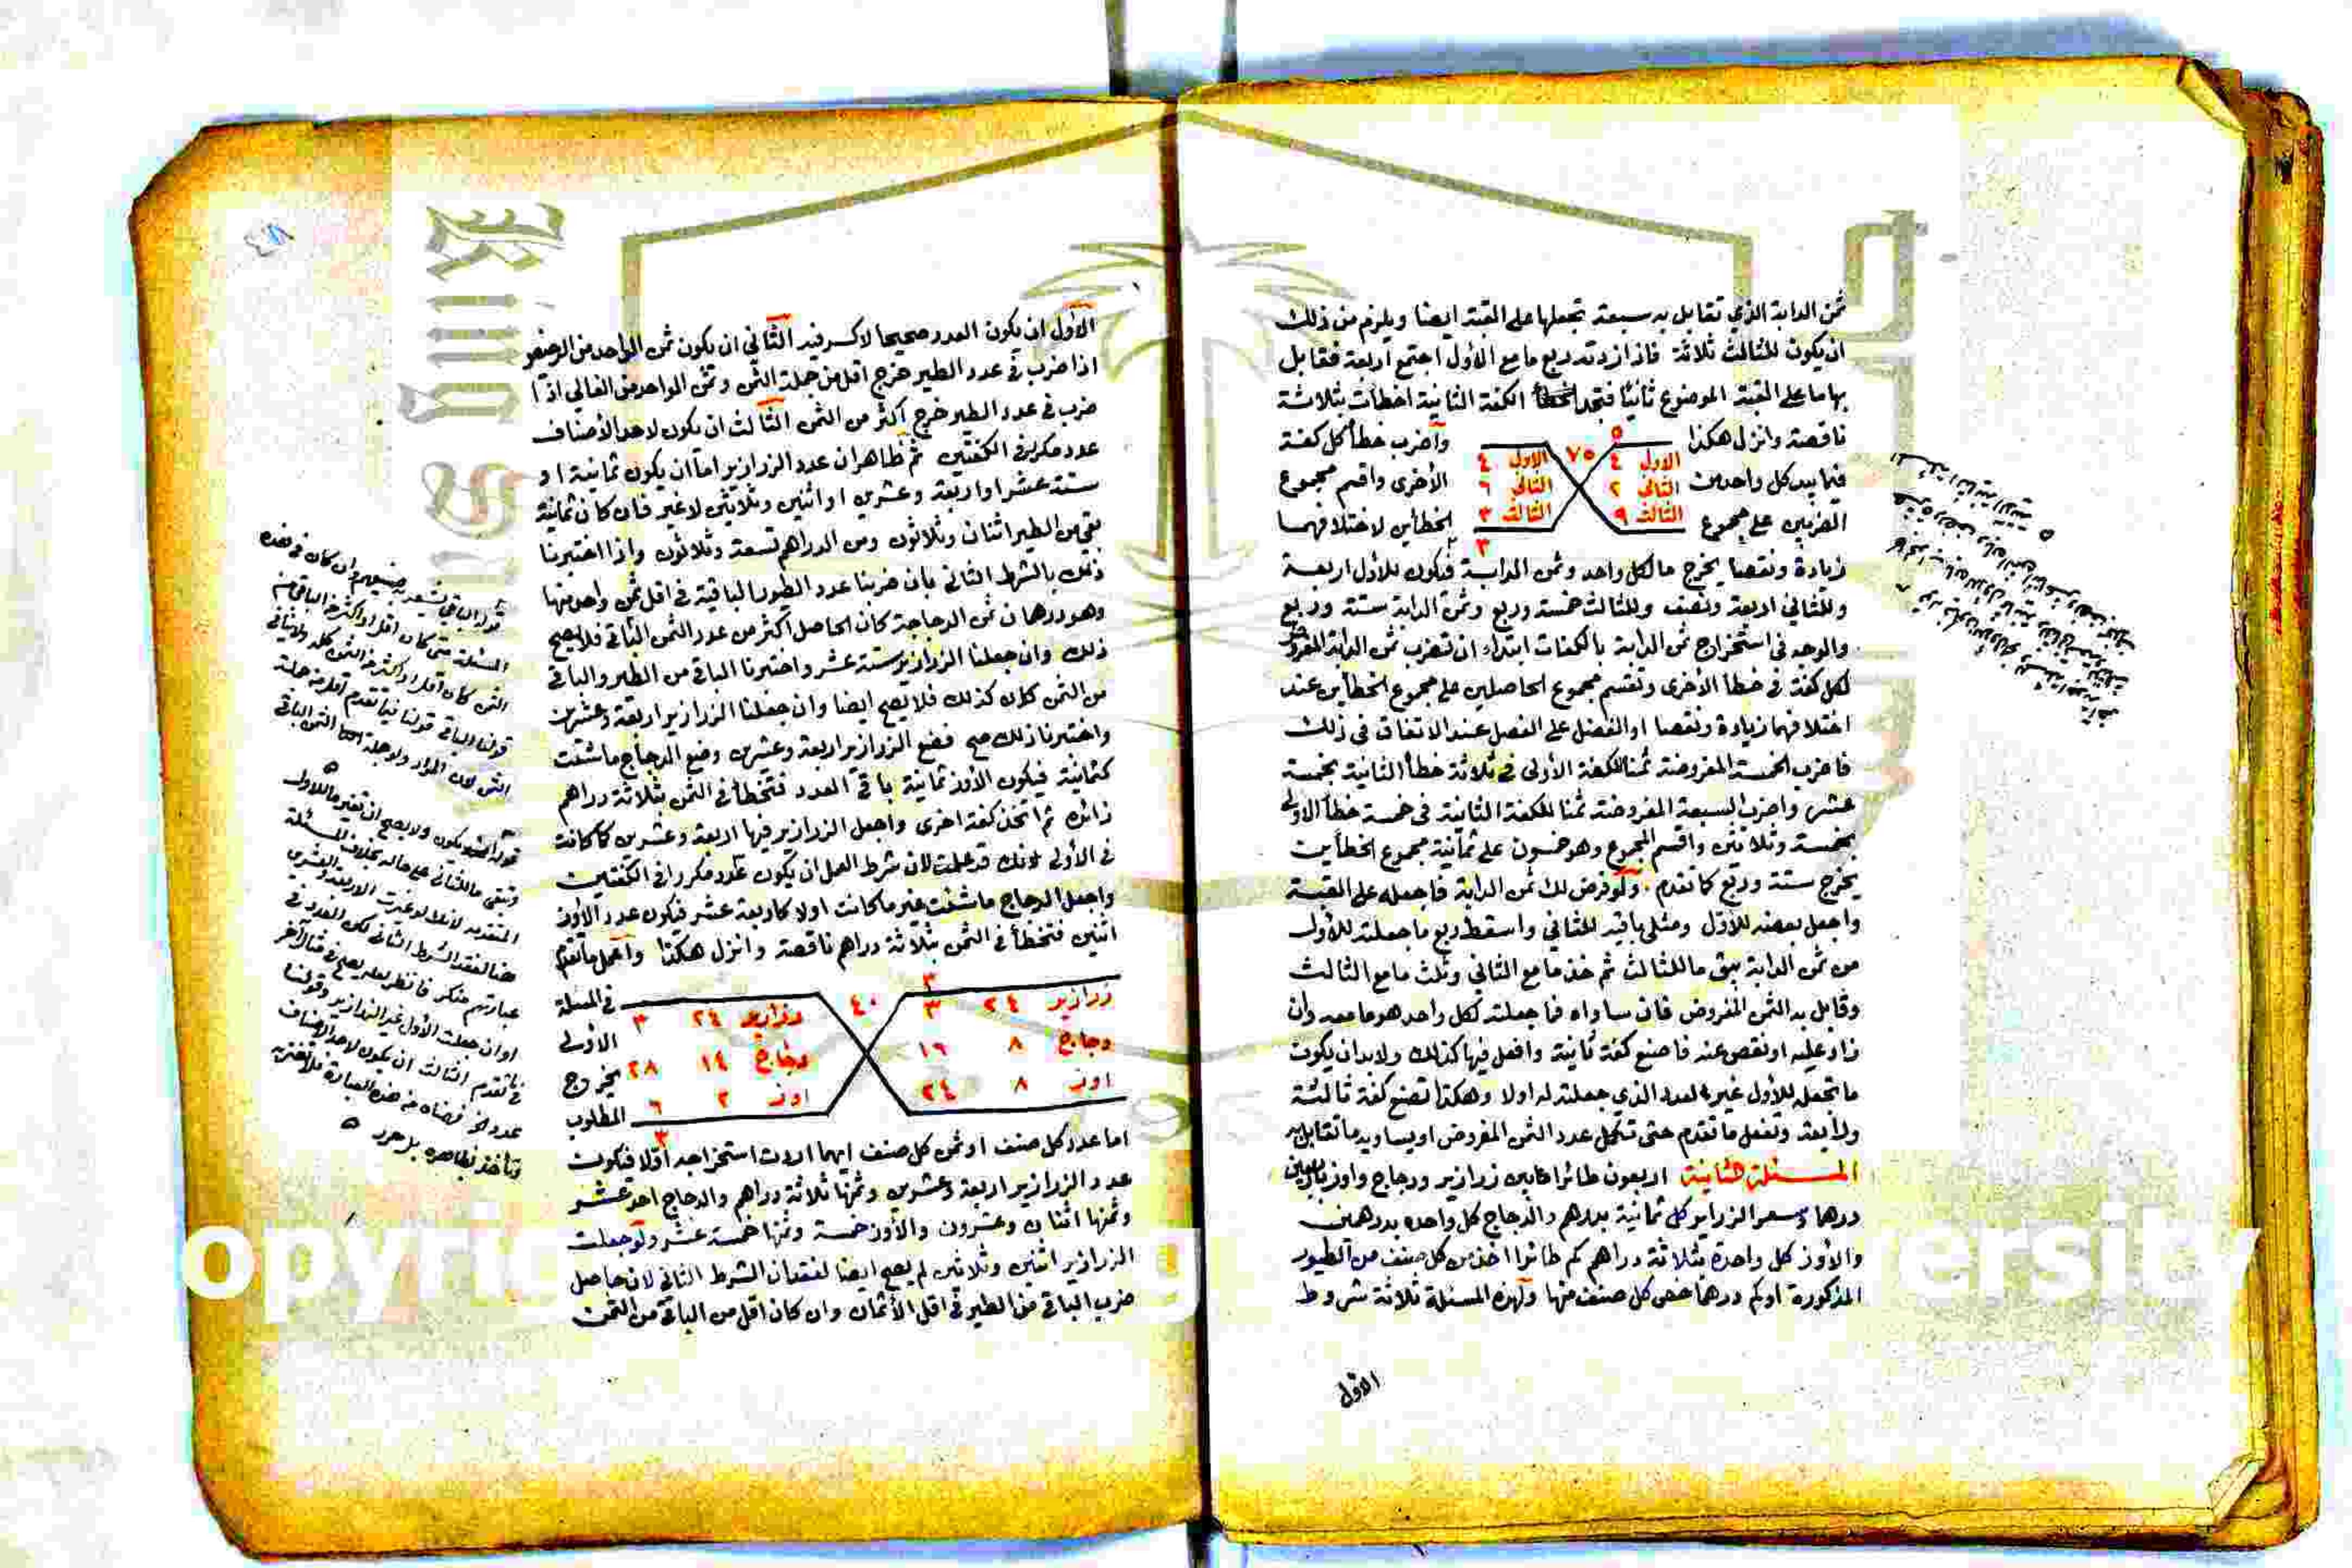 ثمن الدابة الذي تقابل به سبعة تجعلها على القبة ايضا ويلزم من ذلك
ان يكون للثالث ثلاثة فاذا زدته ربع ما مع الأول اجتمع اربعة فقابل
بها ما على القبة الموضوع ثانيا فتجد الكفة الثانية اخطأت بثلاثة
ناقصة وانزل هكذا واضرب خطأ كل كفة
فيما بيد كل واحد من الأخرى واقسم مجموع
الضربين على مجموع الخطأين لاختلافهما
٥
٧٥
الاول ٤ الاول ٤
الثاني ٢ الثاني ٦
الثالث ٩ الثالث ٣
٣
زيادة ونقصا يخرج ما لكل واحد وثمن الدابة فيكون للاول اربعة
وللثاني اربعة ونصف وللثالث خمسة وربع وثمن الدابة ستة وربع
والوجه في استخراج ثمن الدابة بالكفات ابتداء ان تضرب ثمن الدابة المفروض
لكل كفة في خطأ الأخرى وتقسم مجموع الحاصلين على مجموع الخطأين عند
اختلافهما زيادة ونقصا او الفضل على الفضل عند الاتفاق في ذلك
فاضرب الخمسة المفروضة ثمنا للكفة الأولى في ثلاثة خطأ الثانية بخمسة
عشر واضرب السبعة المفروضة ثمنا للكفة الثانية في خمسة خطأ الاولى
بخمسة وثلاثين واقسم المجموع وهو خمسون على ثمانية مجموع الخطأين
يخرج ستة وربع كما تقدم . ولو فرض لك ثمن الدابة فاجعله على القبة
واجعل بعضه للأول ومثلي باقيه للثاني واسقط ربع ما جعلته للأول
من ثمن الدابة يبقى ما للثالث ثم خذ ما مع الثاني وثلث ما مع الثالث
وقابل به الثمن المفروض فان ساواه فما جعلته لكل واحد هو ما معه وان
زاد عليه او نقص عنه فاصنع كفة ثانية وافعل فيها كذلك ولابد ان يكون
ما تجعله للأول غير العدد الذي جعلته له اولا وهكذا تصنع كفة ثالثة
ورابعة وتفعل ما تقدم حتى تكمل عدد الثمن المفروض او يساويه ما تقابل به
المسئلة الثانية اربعون طائرا ما بين زرازير ودجاج واوز باربعين
درهما وسعر الزرازير كل ثمانية بدرهم والدجاج كل واحده بدرهمين
والأوز كل واحدة بثلاثة دراهم كم طائرا اخذ من كل صنف من الطيور
المذكورة او كم درهما خص كل صنف منها ولهذه المسئلة ثلاثة شروط
الأول
الأول ان يكون العدد صحيحا لا كسر فيه الثاني ان يكون ثمن الواحد من الرخيص
اذا ضرب في عدد الطير خرج اقل من جملة الثمن وثمن الواحد من الغالي اذا
ضرب في عدد الطير خرج اكثر من الثمن الثالث ان يكون لاحد الأصناف
عدد مكرر في الكفتين ثم ظاهر ان عدد الزرازير اما ان يكون ثمانية او
ستة عشر او اربعة وعشرين او اثنين وثلاثين لا غير فان كان ثمانية
بقي من الطير اثنان وثلاثون ومن الدراهم تسعة وثلاثون واذا اختبرنا
ذلك بالشرط الثاني بان ضربنا عدد الطيور الباقية في اقل ثمن واحد منها
وهو درهمان ثمن الدجاجة كان الحاصل اكثر من عدد الثمن الباقي فلا يصح
ذلك وان جعلنا الزرازير ستة عشر واختبرنا الباقي من الطير والباقي
من الثمن كان كذلك فلا يصح ايضا وان جعلنا الزرازير اربعة وعشرين
واختبرنا ذلك صح فضع الزرازير اربعة وعشرين وضع الدجاج ما شئت
كثمانية فيكون الأوز ثمانية باقي العدد فتخطأ في الثمن بثلاثة دراهم
زائدة ثم اتخذ كفة اخرى واجعل الزرازير فيها اربعة وعشرين كما كانت
في الأولى لانك قد علمت ان شرط العمل ان يكون عدد مكررا في الكفتين
واجعل الدجاج ما شئت غير ما كانت اولا كاربعة عشر فيكون عدد الأوز
اثنين فتخطأ في الثمن بثلاثة دراهم ناقصة وانزل هكذا واعمل ما تقدم
في المسئلة
الأولى
يخرج
المطلوب
٣
٤٠
زرازير ٢٤ ٣ زرازير ٢٤ ٣
دجاج ٨ ١٦ دجاج ١٤ ٢٨
اوز ٨ ٢٤ اوز ٢ ٦
٣
اما عدد كل صنف او ثمن كل صنف ايهما اردت استخراجه أولا فيكون
عدد الزرازير اربعة وعشرين وثمنها ثلاثة دراهم والدجاج احد عشر
وثمنها اثنان وعشرون والأوز خمسة وثمنها خمسة عشر ولو جعلت
الزرازير اثنين وثلاثين لم يصح ايضا لفقدان الشرط الثاني لان حاصل
ضرب الباقي من الطير في اقل الأثمان وان كان اقل من الباقي من الثمن
المسئلة متى كان اقل او اكثر من الباقي من
الثمن كان اقل او اكثر من الثمن كله
قولنا الباقي قولنا فيما تقدم اقل من جملة
الثمن لان المراد
وتبقي ما للثاني على حاله بخلاف المسئلة
المتقدمة لانك لو غيرت الاربعة والعشرين
هنا لفقد الشرط الثاني
او ان جعلت الأول غير الزرازير وقولنا
فيما تقدم الثالث ان يكون لاحد الاصناف
عدد